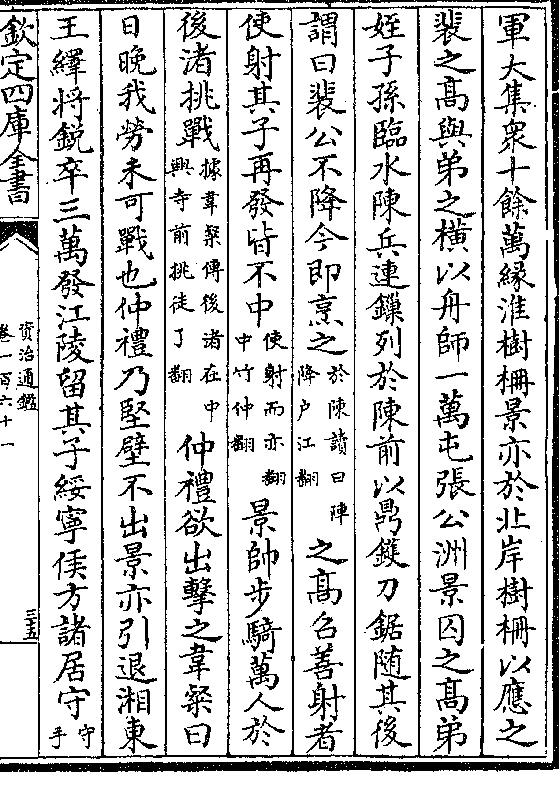 軍大集衆十餘萬緣淮樹柵景亦於北岸樹柵以應之
裴之髙與弟之横以舟師一萬屯張公洲景囚之髙弟
姪子孫臨水陳兵連鏁列於陳前以鼎鑊刀鋸随其後
謂曰裴公不降今即烹之於陳讀曰陣降户江翻之髙召善射者
使射其子再發皆不中使射而亦翻中竹仲翻景帥步騎萬人於
後渚挑戰據韋粲傳後渚在中興寺前挑徒了翻仲禮欲出擊之韋粲曰
日晚我勞未可戰也仲禮乃堅壁不出景亦引退湘東
王繹将鋭卒三萬發江陵留其子綏寧侯方諸居守守手
欽定四庫全書
資治通鑑
卷一百六十一
三五